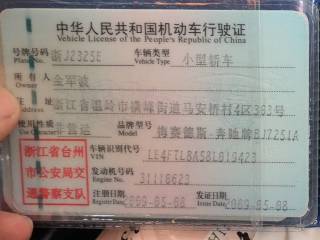 中华人民共和国机动车行驶证
Vehicle License of the People's Republic of China
号牌号码 浙J2325E 车辆类型 小型轿车
Plate No. Vehicle Type
所有人
Owner
住址 浙江省温岭市横峰街道马安桥村4区363号
Address
使用性质 非营运 品牌型号 梅赛德斯-奔驰牌BJ7251A
Use Character Model
浙江省台州 车辆识别代号 LE4FTL8A58L019423
市公安局交 VIN
通警察支队 发动机号码 31118623
Engine No.
注册日期 2009-05-08 发证日期 2009-05-08
Register Date Issue Date